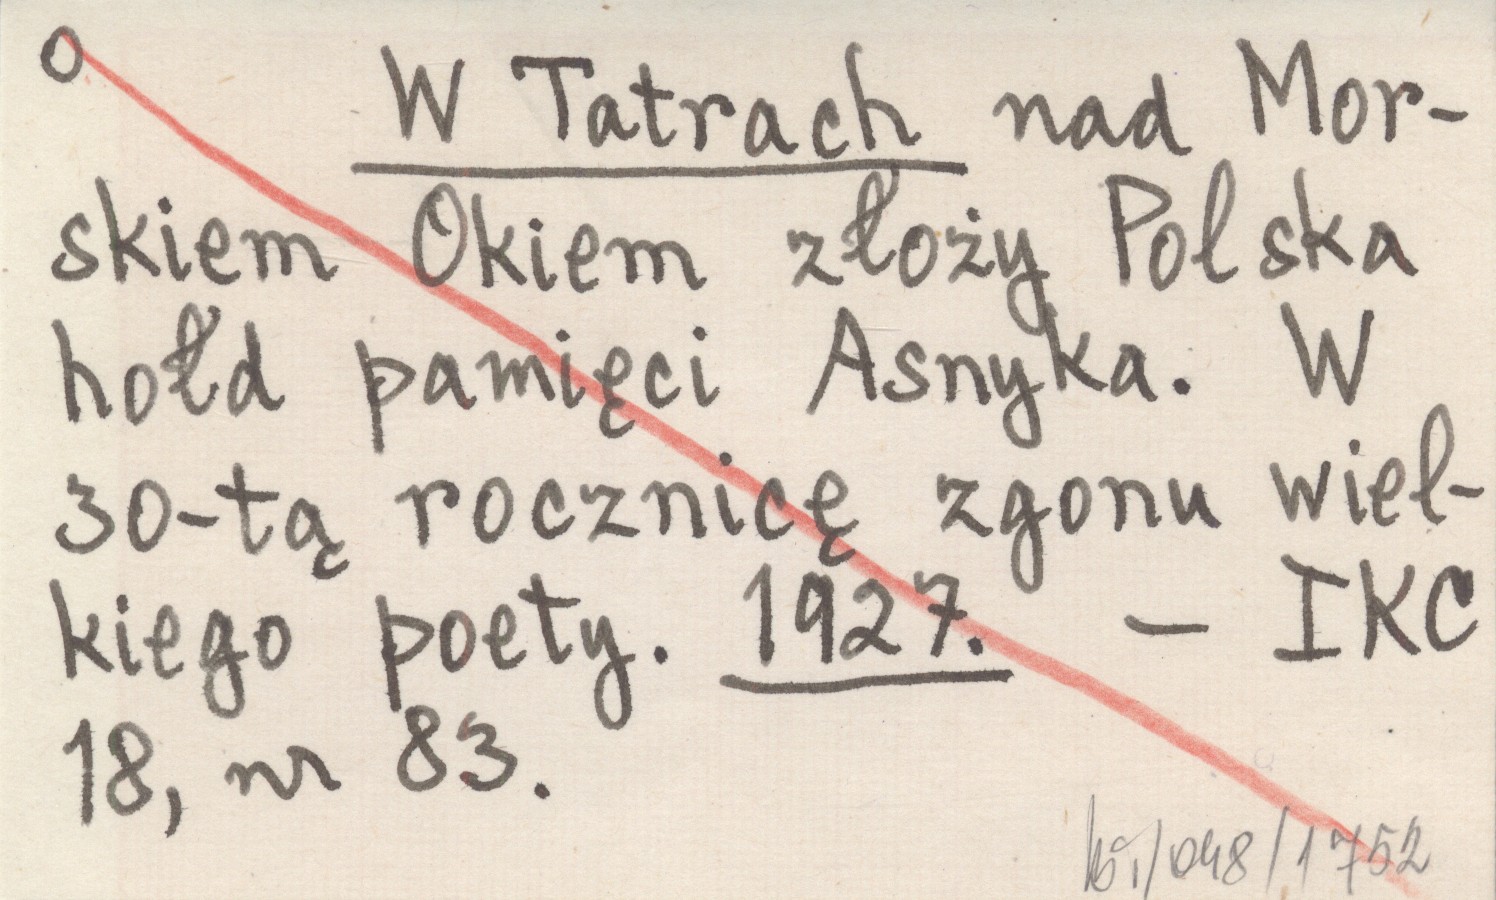 O W Tatrach nad Mor-
skiem Okiem złoży Polska
hołd pamięci Asnyka. W
30-tą rocznicę zgonu wiel-
kiego poety. 1927. – IKC
18, nr 83.
/048/1752